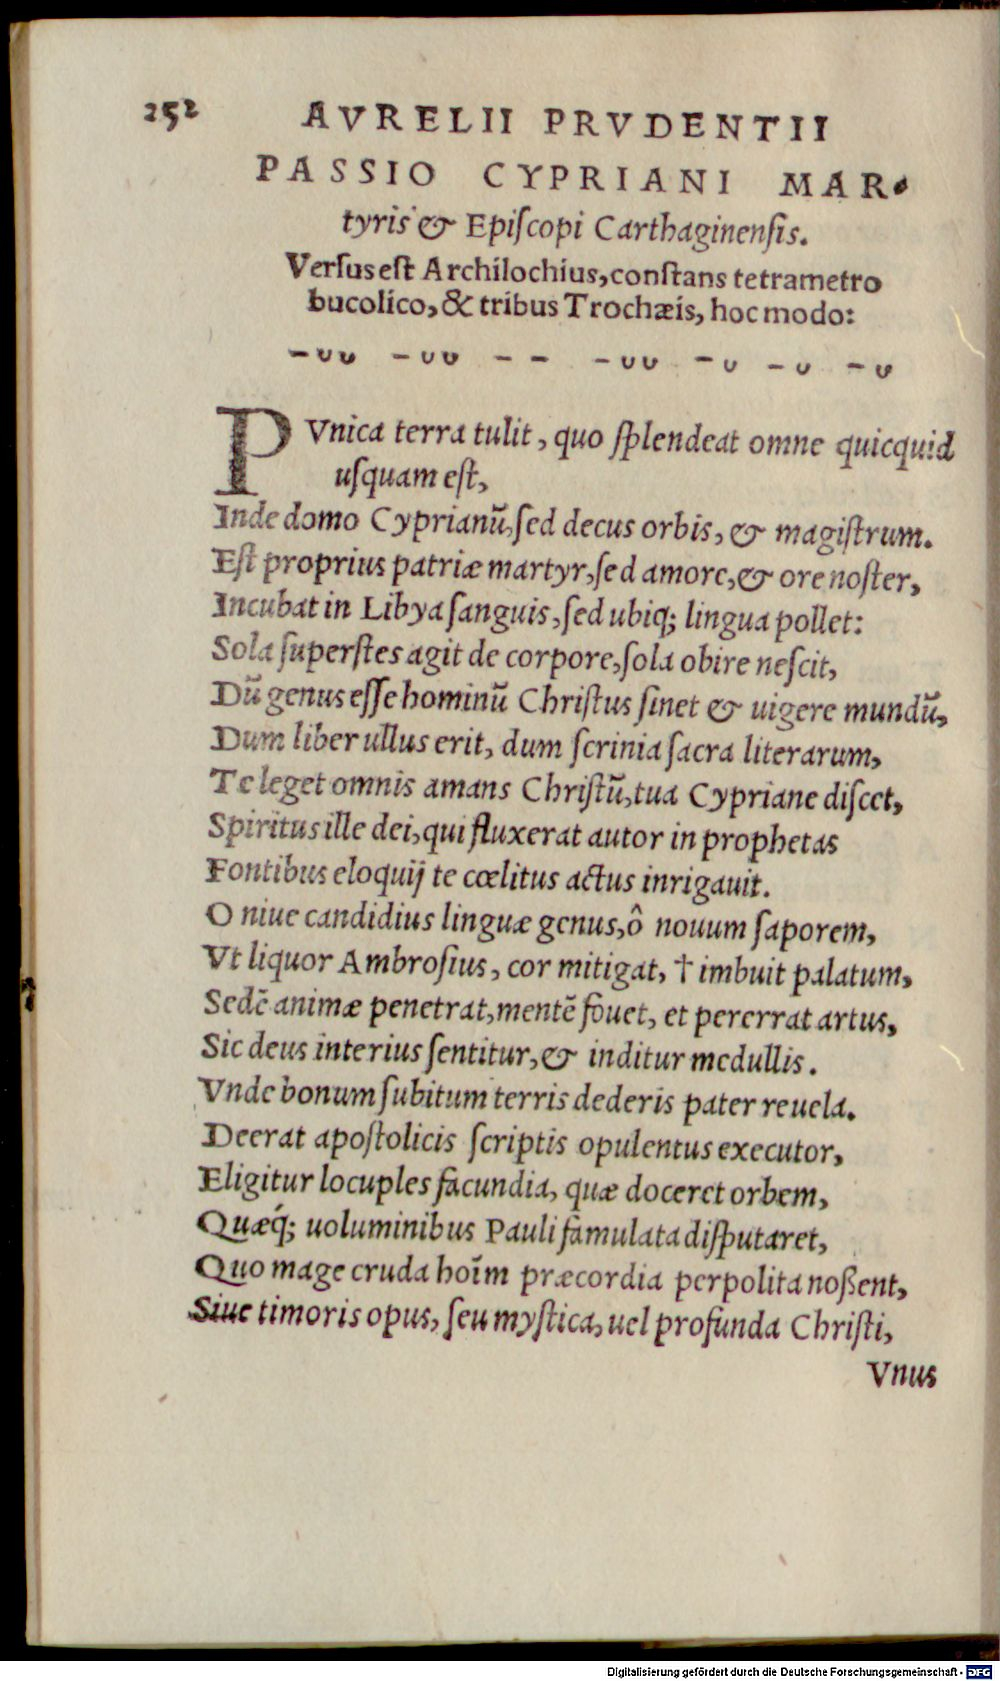 252 AVRELII PRVDENTII
PASSIO CYPRIANI MAR-
tyris & Epiſcopi Carthaginenſis.
Verſus eſt Archilochius, conſtans tetrametro
bucolico, & tribus Trochæis, hoc modo:
– ᴗ ᴗ – ᴗ ᴗ – – – ᴗ ᴗ – ᴗ – ᴗ – ᴗ
PVnica terra tulit, quo ſplendeat omne quicquid
uſquam eſt,
Inde domo Cyprianũ, ſed decus orbis, & magiſtrum.
Eſt proprius patriæ martyr, ſed amore, & ore noſter,
Incubat in Libya ſanguis, ſed ubiq; lingua pollet:
Sola ſuperſtes agit de corpore, ſola obire neſcit,
Dũ genus eſſe hominũ Chriſtus ſinet & uigere mundũ,
Dum liber ullus erit, dum ſcrinia ſacra literarum,
Te leget omnis amans Chriſtũ, tua Cypriane diſcet,
Spiritus ille dei, qui fluxerat autor in prophetas
Fontibus eloquij te cœlitus actus inrigauit.
O niue candidius linguæ genus, ô nouum ſaporem,
Vt liquor Ambroſius, cor mitigat, † imbuit palatum,
Sedẽ animæ penetrat, mentẽ fouet, et pererrat artus,
Sic deus interius ſentitur, & inditur medullis.
Vnde bonum ſubitum terris dederis pater reuela.
Deerat apoſtolicis ſcriptis opulentus executor,
Eligitur locuples facundia, quæ doceret orbem,
Quæq́; uoluminibus Pauli famulata diſputaret,
Quo mage cruda hoĩm præcordia perpolita noßent,
Siue timoris opus, ſeu myſtica, uel profunda Chriſti,
Vnus
Digitalisierung gefördert durch die Deutsche Forschungsgemeinschaft - DFG